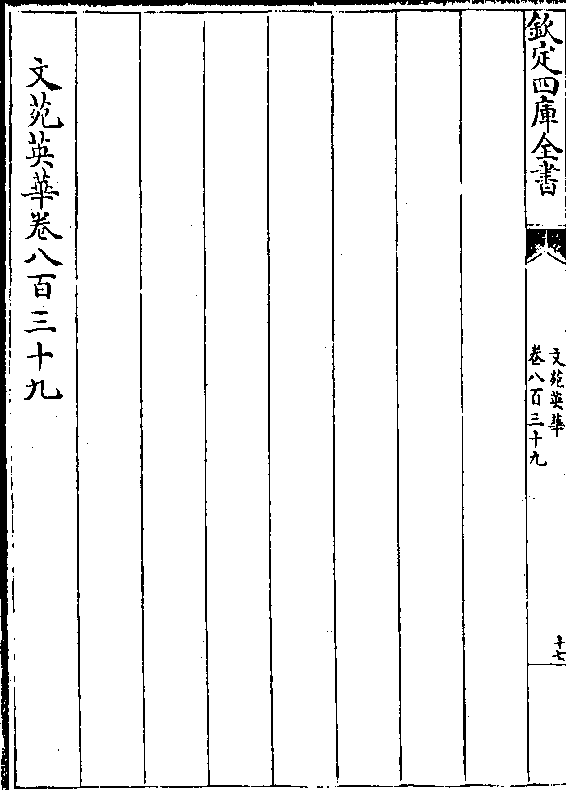 欽定四庫全書
文苑英華
卷八百三十九
十七
文苑英華卷八百三十九